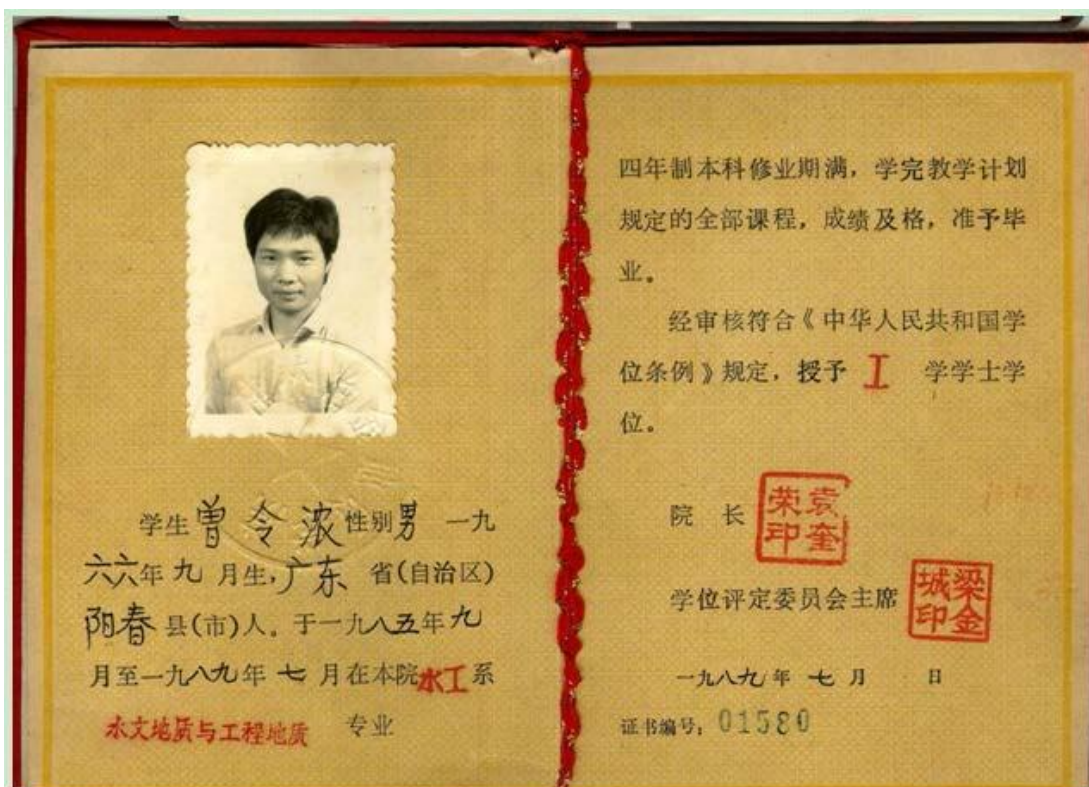 学生曾令浓性别男 一九
六六年九月生,广东 省(自治区)
阳春县(市)人。于一九八五年九
月至一九八九年七月在本院水工系
水文地质与工程地质 专业
四年制本科修业期满,学完教学计划
规定的全部课程,成绩及格,准予毕
业。
经审核符合《中华人民共和国学
位条例》规定,授予 工 学学士学
位。
院 长 袁奎荣印
学位评定委员会主席 梁金城印
一九八九年七月 日
证书编号:01580